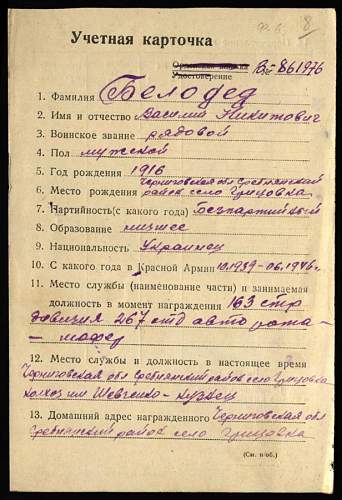 Ф. 6. 8
Учетная карточка
Орденская книжка В № 861976
Удостоверение
1. Фамилия Белодед
2. Имя и отчество Василий Никитович
3. Воинское звание рядовой
4. Пол мужской
5. Год рождения 1916
Черниговская обл Сребнянский
6. Место рождения район село Грицовка
7. Партийность (с какого года) безпартийный
8. Образование низшее
9. Национальность Украинец
10. С какого года в Красной Армии 10.1939-06.1946 г
11. Место службы (наименование части) и занимаемая
должность в момент награждения 163 стр
дивизия 267 отд авто рота –
– шофер
12. Место службы и должность в настоящее время
Черниговская обл Сребнянский район село Грицовка
колхоз им Шевченко-кузнец
13. Домашний адрес награжденного Черниговская обл
Сребнянский район село Грицовка
(См. н/об.)